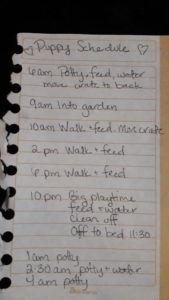 ♡ Puppy Schedule ♡
6am Potty, feed, water
move crate to back
9am Into garden
10am Walk + feed. Move crate
2pm Walk + feed
6pm Walk + feed
10pm Big playtime
feed + water
Clean off
Off to bed 11:30
1am potty
2:30am potty + water
4am potty